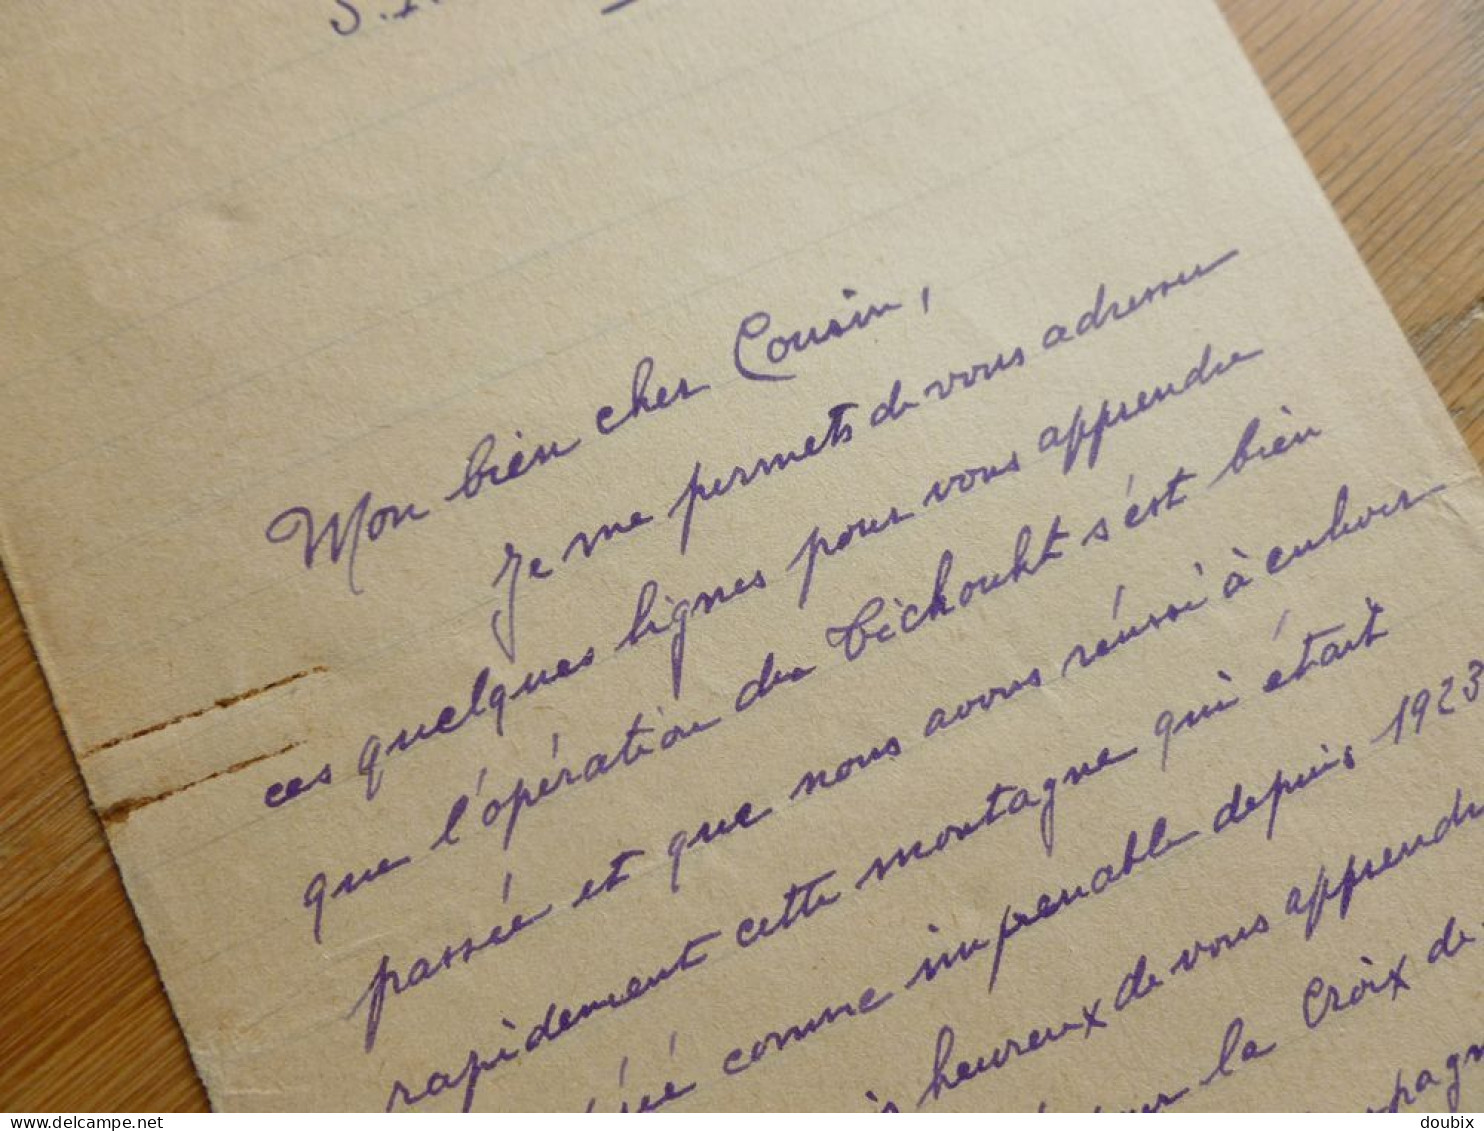 Mon bien cher Cousin,
Je me permets de vous adresser
ces quelques lignes pour vous apprendre
que l'opération du Tichoukt s'est bien
passée et que nous avons réussi à enlever
rapidement cette montagne qui était
comme imprenable depuis 1923
heureux de vous apprendre
la Croix de
www.delcampe.net
doubix